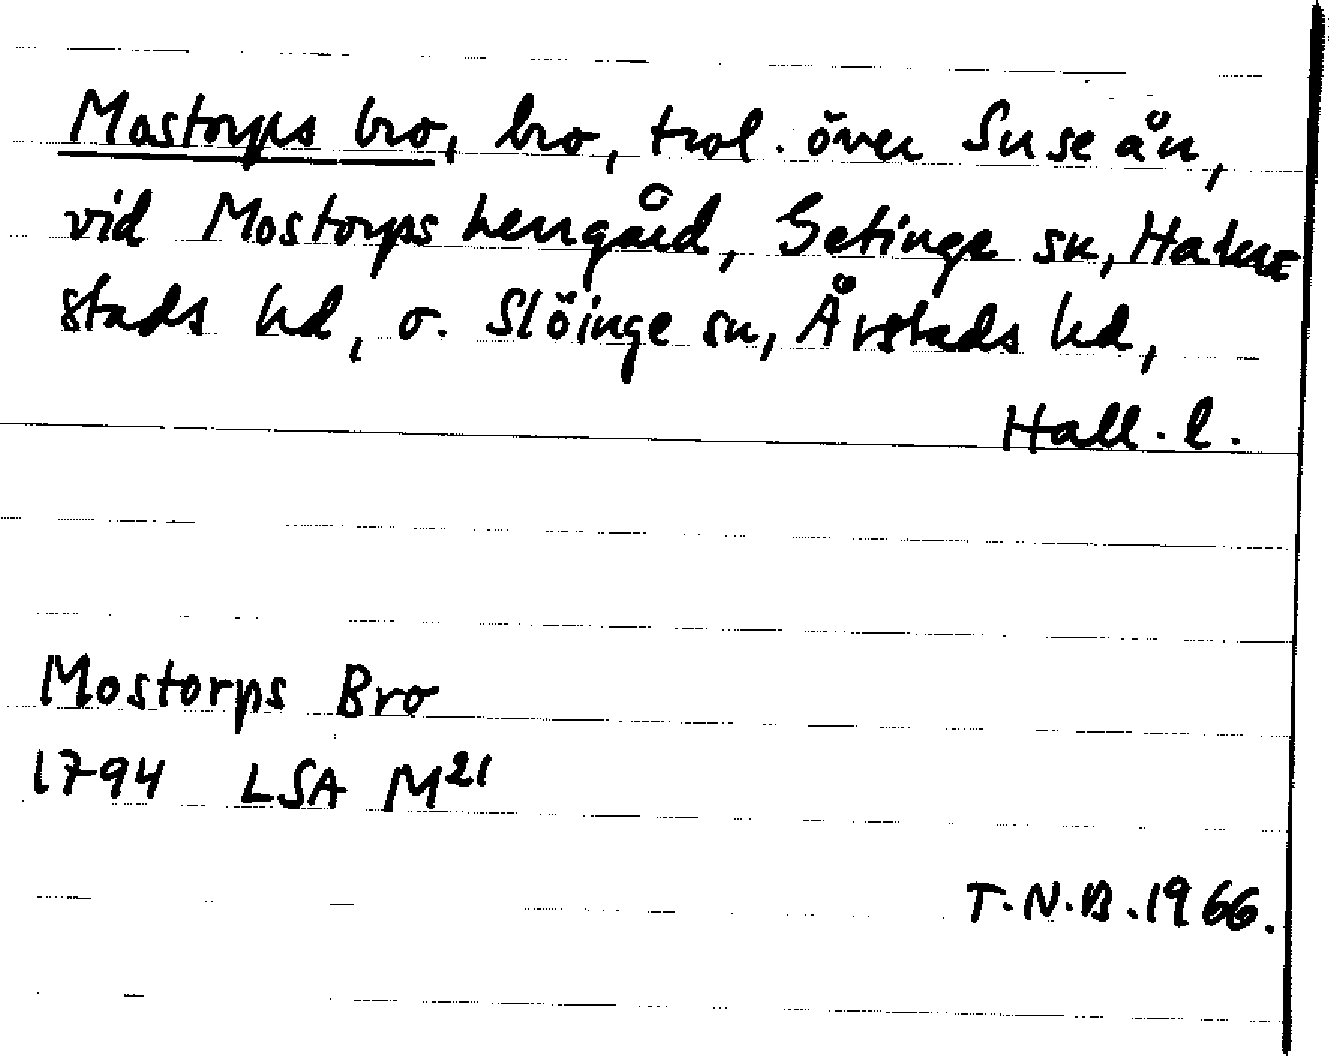 Mostorps bro, bro, trol. över Suseån,
vid Mostorps herrgård, Getinge sn, Halm-
stads hd, o. Slöinge sn, Årstads hd,
Hall. l.
Mostorps Bro
1794 LSA M21
T.N.B. 1966.